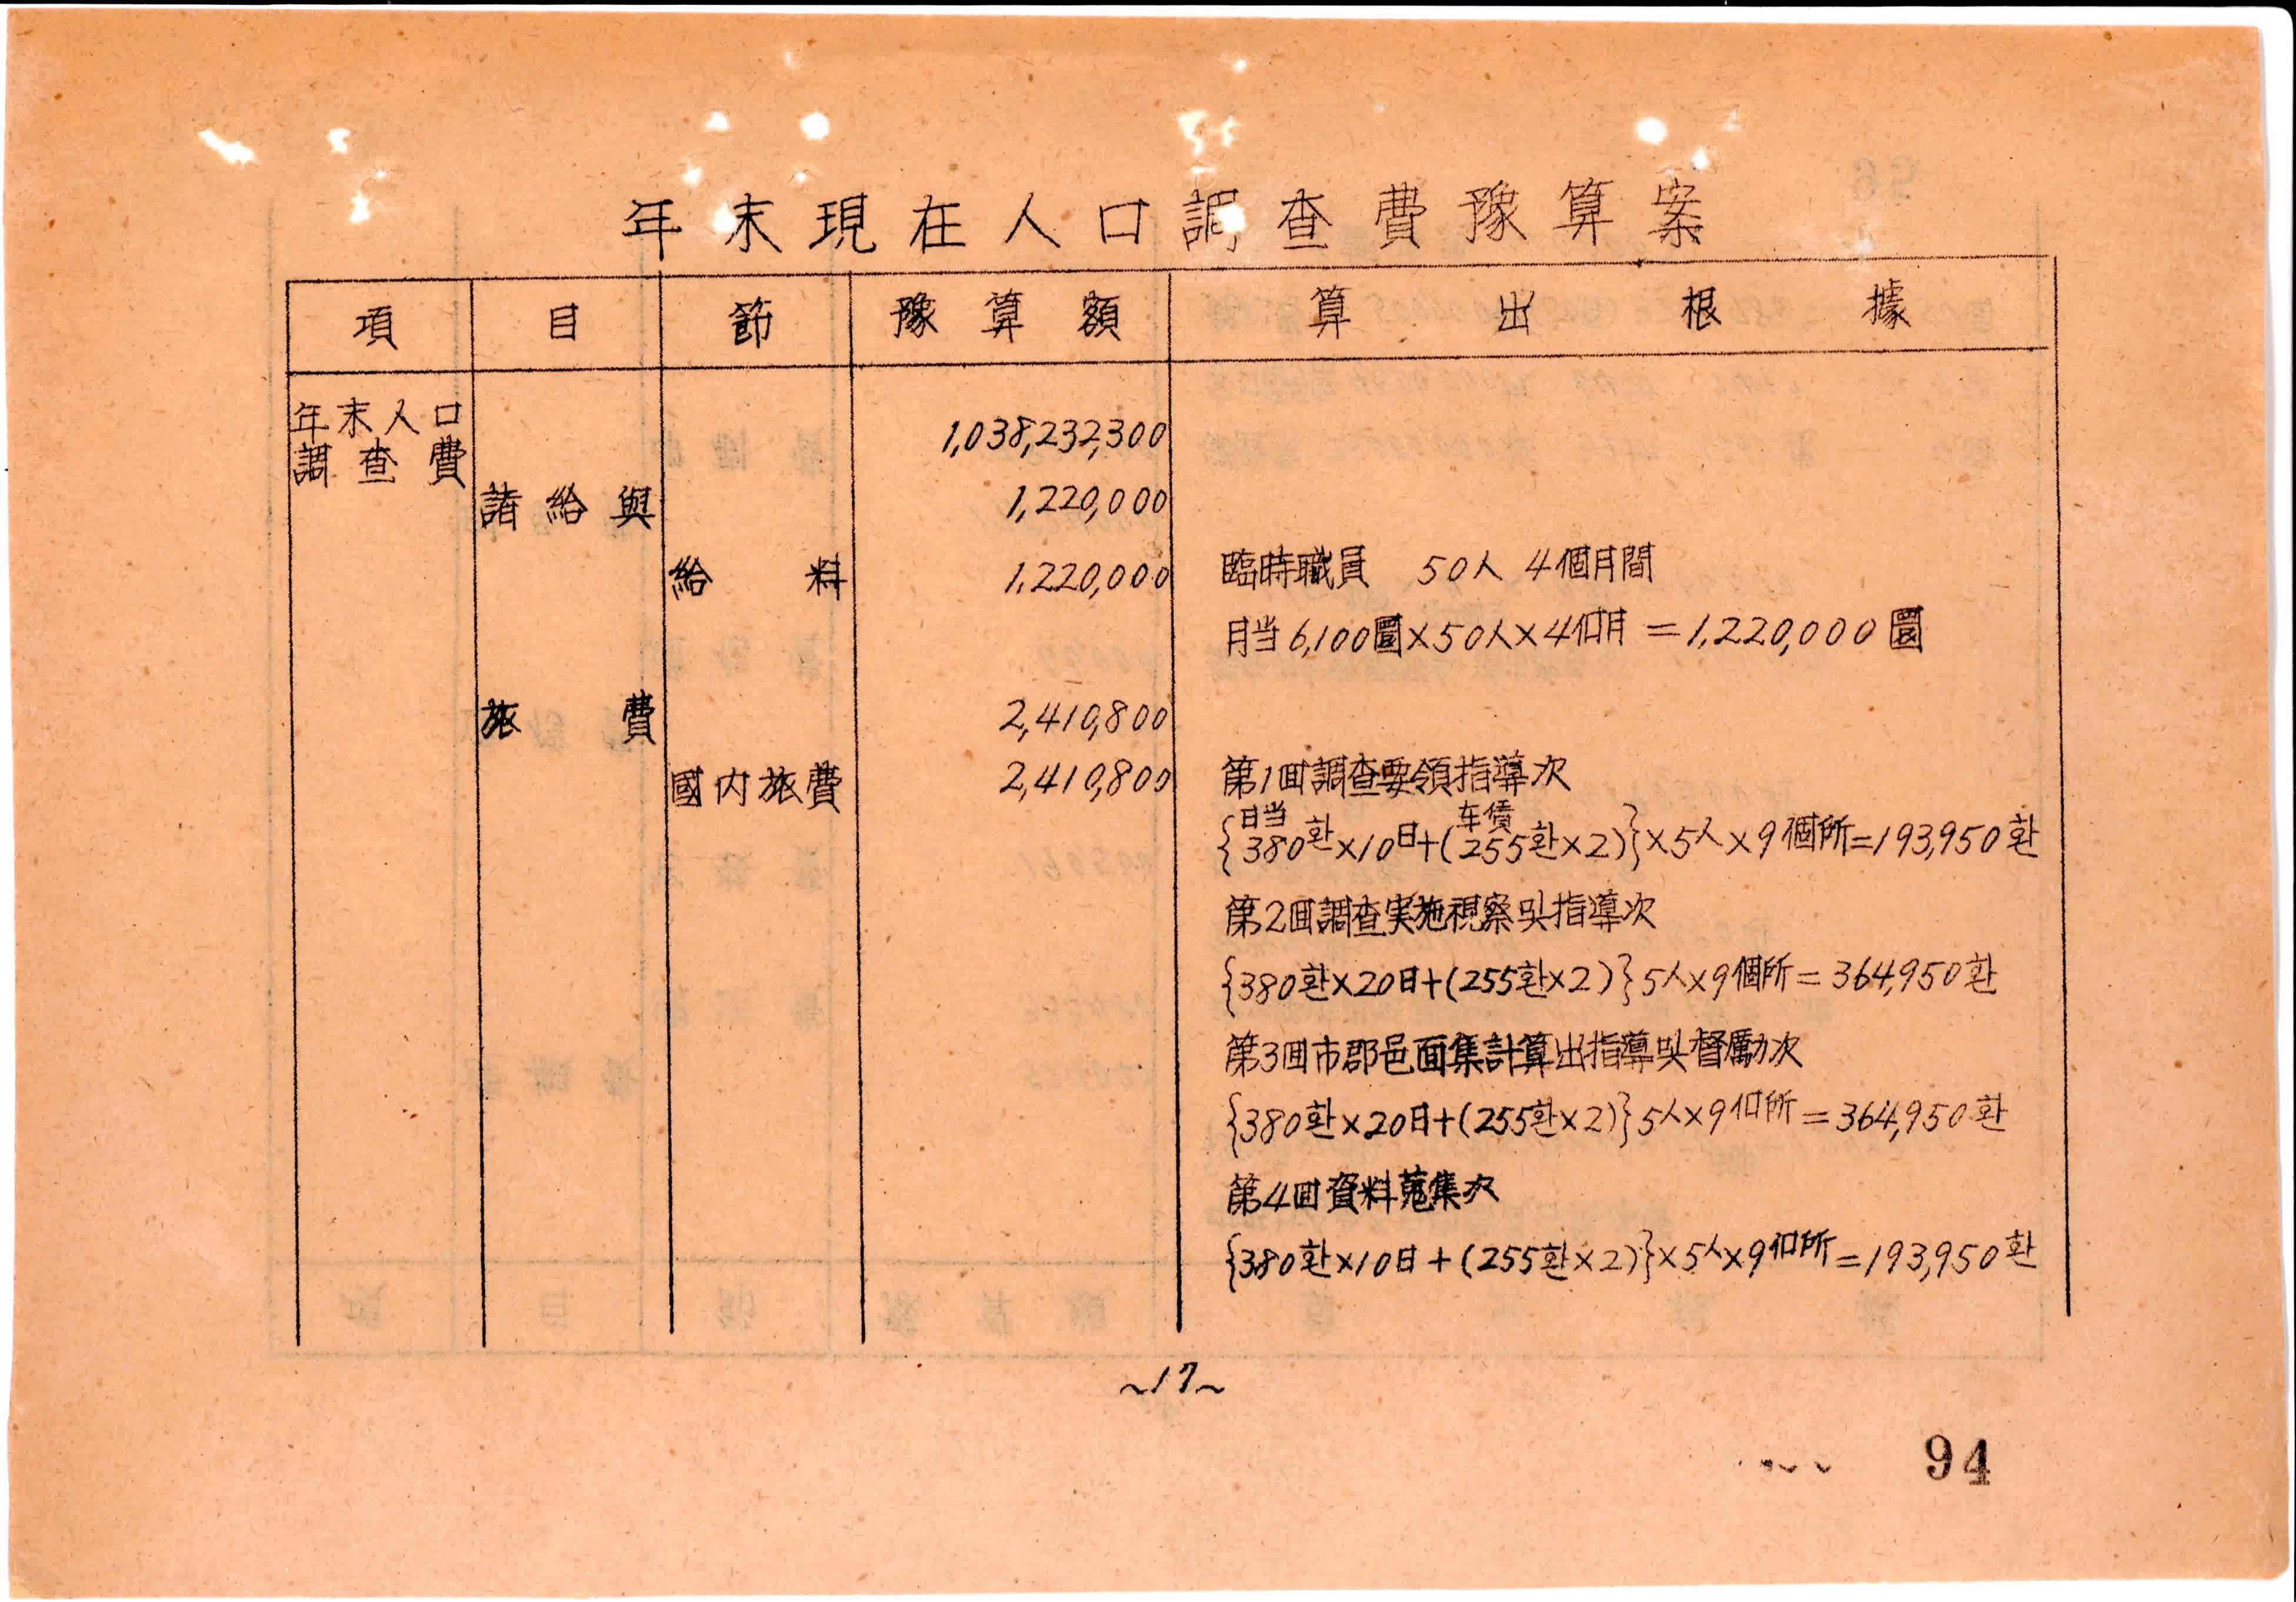 年末現在人口調査費豫算案
項 目 節 豫算額 算出根據
年末人口
調査費
1,038,232,300
諸給與 1,220,000
給料 1,220,000 臨時職員 50人 4個月間
月当6,100圜×50人×4個月=1,220,000圜
旅費 2,410,800
國内旅費 2,410,800 第1回調査要領指導次
日当 车賃
{380환×10日+(255환×2)}×5人×9個所=193,950환
第2回調査実施視察및指導次
{380환×20日+(255환×2)}5人×9個所=364,950환
第3回市郡邑面集計算出指導및督勵次
{380환×20日+(255환×2)}5人×9個所=364,950환
第4回資料蒐集次
{380환×10日+(255환×2)}×5人×9個所=193,950환
~17~
94